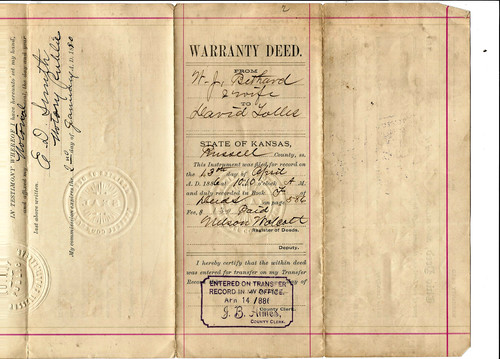 2
IN TESTIMONY WHEREOF I have hereunto set my hand,
and affixed my Notorial seal, the day and year
last above written.
E D Smyth
Notory Public
My commission expires the 2nd day of January A. D. 1890
WARRANTY DEED.
FROM
W. J. Bethard
& wife
TO
David Tolles
STATE OF KANSAS,
Russell County, ss.
This Instrument was filed for record on
the 13th day of April
A. D. 1886 10:10 o'clock A M.
and duly recorded in Book F of
Deeds on page 586
Fee, $ Paid
Nelson Wolcott
Register of Deeds.
Deputy.
I hereby certify that the within deed
was entered for transfer on my Transfer
Record of
ENTERED ON TRANSFER
RECORD IN MY OFFICE.
APR 14 1886
County Clerk.
J. B. Himes,
COUNTY CLERK.